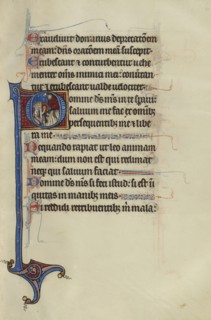 Exaudivit dominus deprecationem
meam: dns orationem meam suscepit
Erubescant & conturbentur vehe
menter oms inimici mei: convertan
tur & erubescant valde velociter
Domine ds ms in te speravi
salvum me fac ex omibz
persequentibz me & libe
ra me
Nequando rapiat ut leo animam
meam: dum non est qui redimat
neqz qui salvum faciat
Domine ds ms si feci istud: si est i
quitas in manibz meis
Si reddidi retribuentibz m mala: